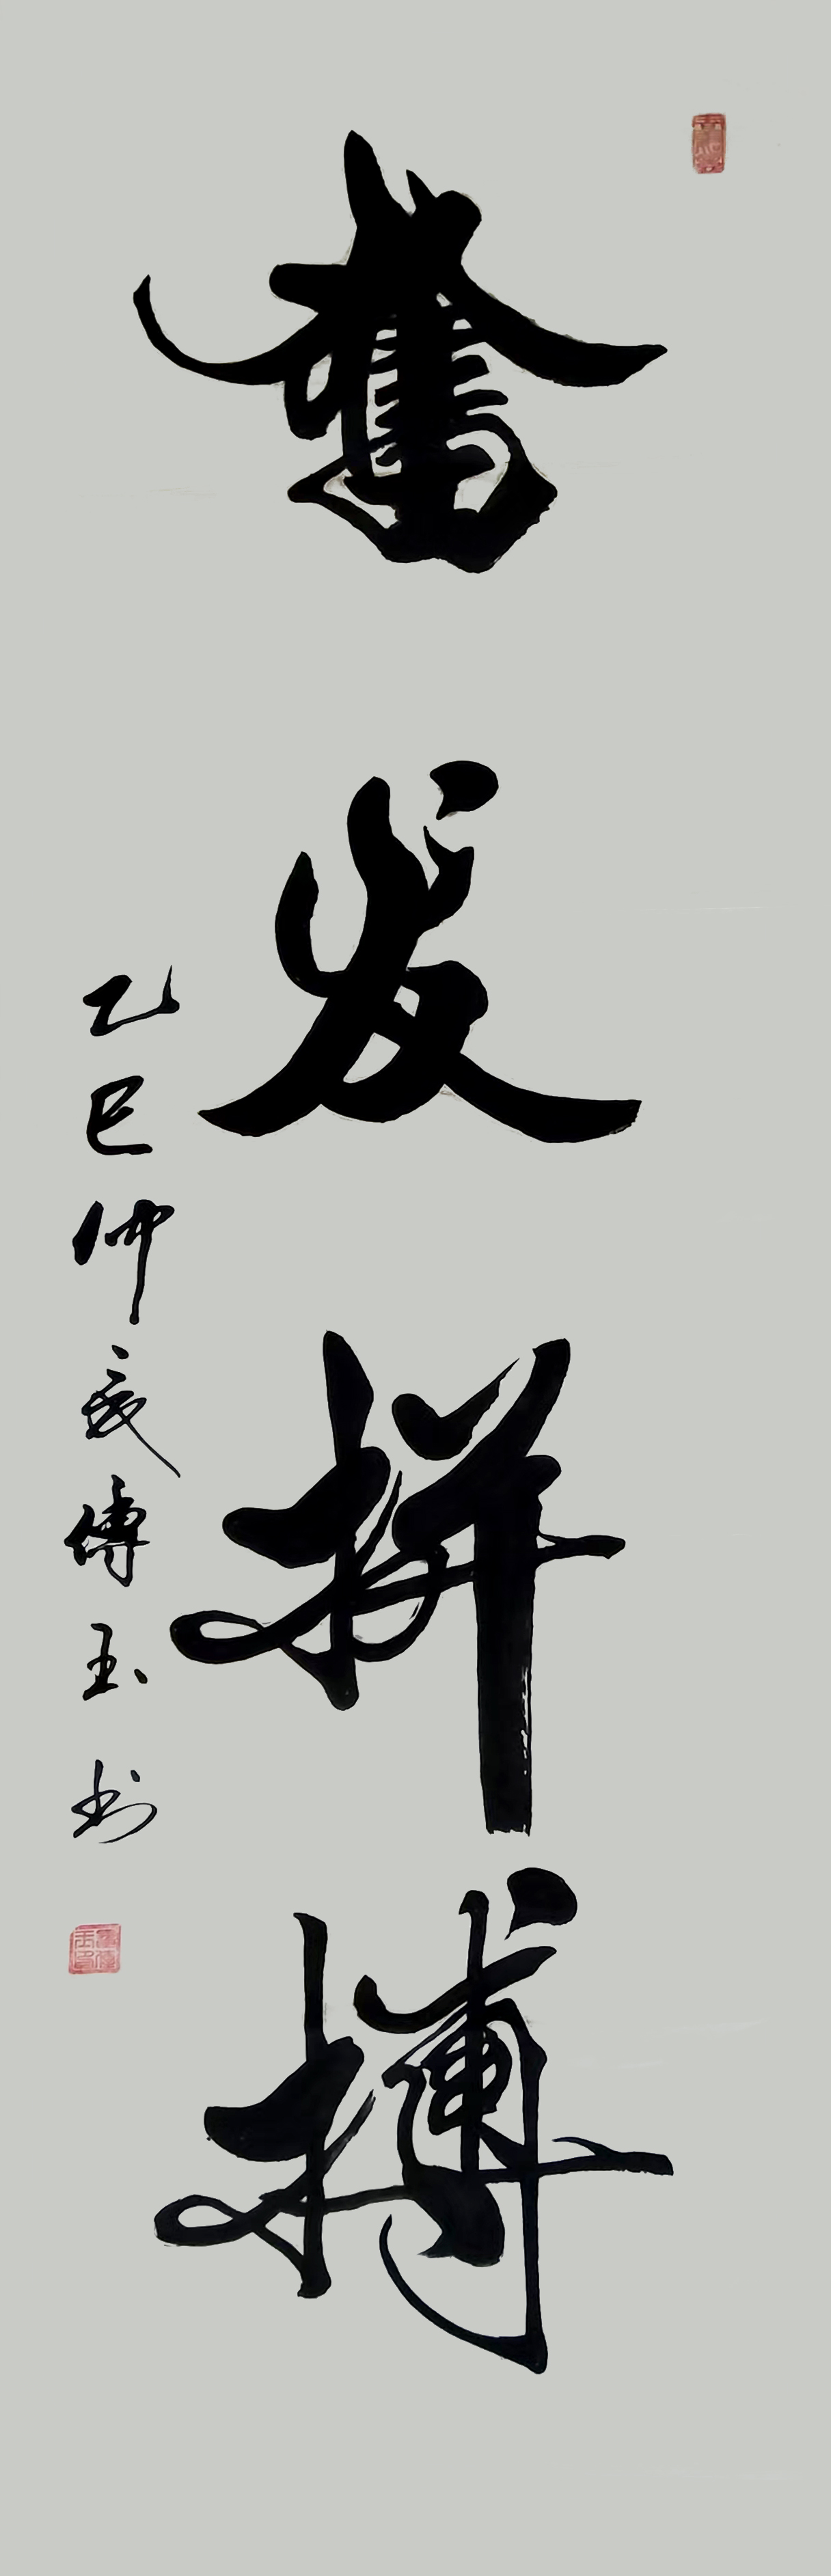 奮发拼搏
乙巳仲夏傅玉书